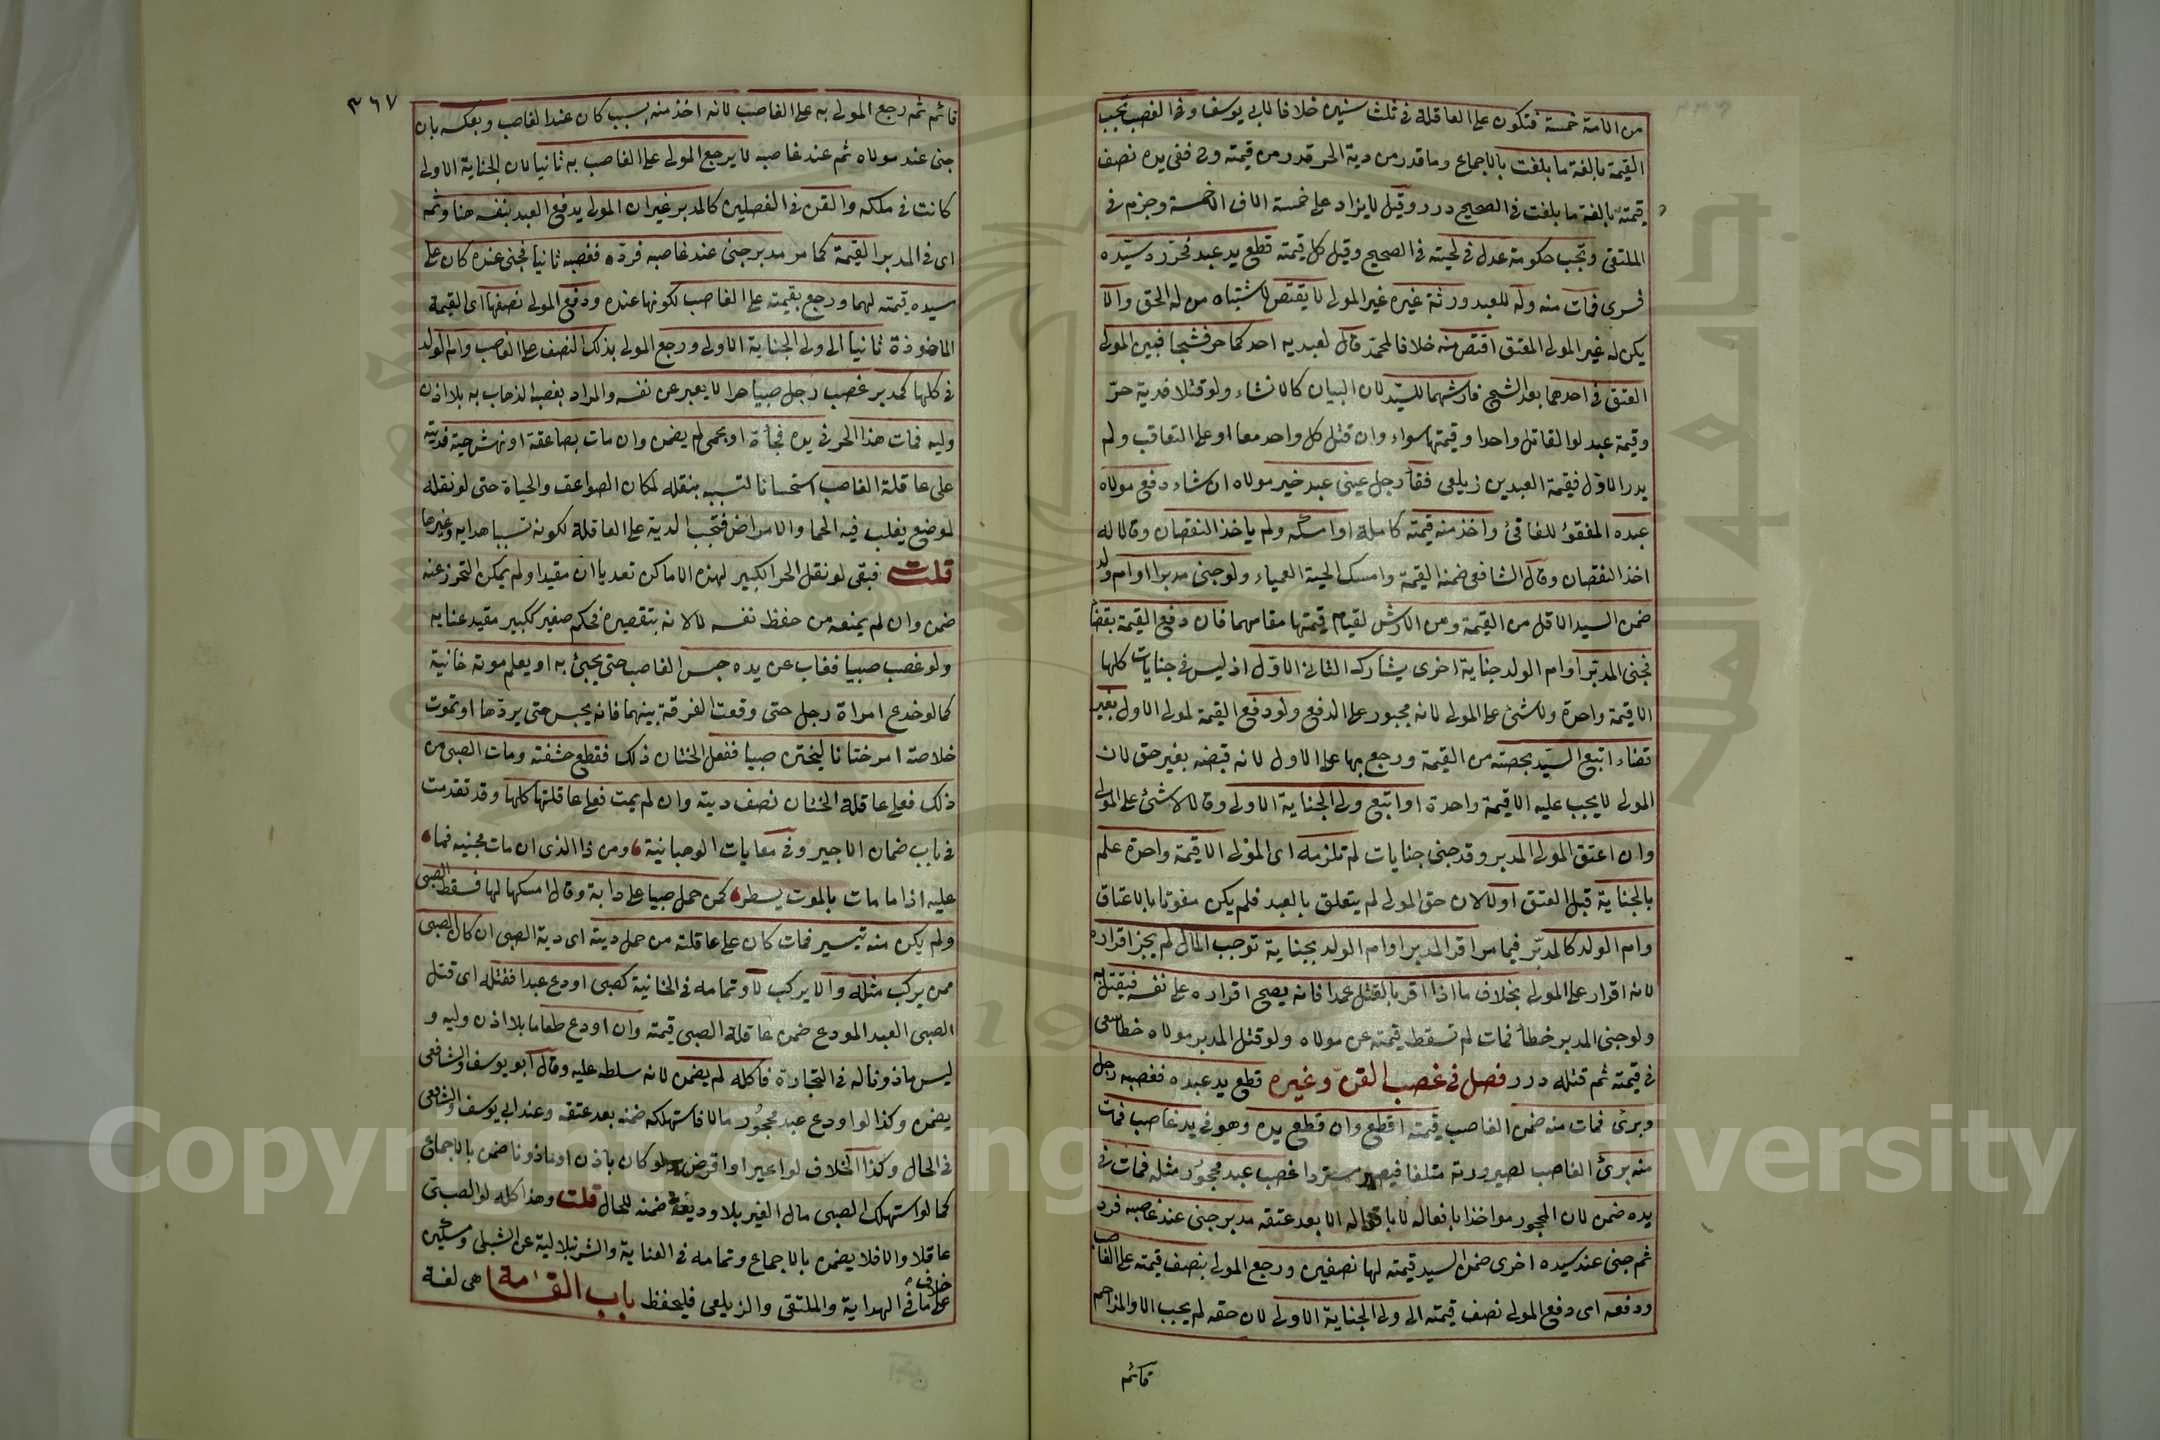 من الامة خمسة فتكون على العاقلة في ثلث سنين خلافا لابي يوسف وفي الغصب تجب
القيمة بالغة ما بلغت بالاجماع وما قدر من دية الحر قدر من قيمته وح ففي يده نصف
قيمته بالغة ما بلغت في الصحيح درر وقيل لا يزاد على خمسة الاف الا خمسة وجزم في
الملتقى وتجب حكومة عدل في لحيته في الصحيح وقيل كل قيمته قطع يد عبد فحرره سيده
فسرى فمات منه وله للعبد ورثة غيره غير المولى لا يقتص لاشتباه من له الحق والا
يكن له غير المولى المعتق اقتص منه خلافا لمحمد قال لعبديه احدكما حر فشجا فبين المولى
العتق في احدهما بعد الشج فارشهما للسيد لان البيان كالانشاء ولو قتلا فدية حر
وقيمة عبد لو القاتل واحدا وقيمتهما سواء وان قتل كل واحد معا او على التعاقب ولم
يدر الاول فقيمة العبدين زيلعي فقأ رجل عيني عبد خير مولاه ان شاء دفع مولاه
عبده المفقؤ للفاقئ واخذ منه قيمته كاملة او امسكه ولم ياخذ النقصان وقالا له
اخذ النقصان وقال الشافعي ضمنه القيمة وامسك الجثة العمياء ولو جنى مدبر او ام ولد
ضمن السيد الاقل من القيمة ومن الارش لقيام قيمتها مقامهما فان دفع القيمة بقضا
فجنى المدبر او ام الولد جناية اخرى يشارك الثاني الاول اذ ليس في جنايات كلها
الا قيمة واحدة ولا شئ على المولى لانه مجبور على الدفع ولو دفع القيمة لمولى الاول بغير
قضاء اتبع السيد بحصته من القيمة ورجع بها على الاول لانه قبضه بغير حق لان
المولى لا يجب عليه الا قيمة واحدة او اتبع ولي الجناية الاولى وقالا لا شئ على المولى
وان اعتق المولى المدبر وقد جنى جنايات لم تلزمه اى المولى الا قيمة واحدة علم
بالجناية قبل العتق اولا لان حق المولى لم يتعلق بالعبد فلم يكن مفوتا بالاعتاق
وام الولد كالمدبر فيما مر اقر المدبر او ام الولد بجناية توجب المال لم يجز اقراره
لانه اقرار على المولى بخلاف ما اذا اقر بالقتل عمدا فانه يصح اقراره على نفسه فيقتل به
ولو جنى المدبر خطأ فمات لم تسقط قيمته عن مولاه ولو قتل المدبر مولاه خطأ سعى
في قيمته ثم قتله درر فصل في غصب القن وغيره قطع يد عبده فغصبه رجل
وبرئ فمات منه ضمن الغاصب قيمته اقطع وان قطع يده وهو في يد غاصب فمات
منه برئ الغاصب لصيرورته متلفا فيصير مستردا غصب عبد محجور مثله فمات في
يده ضمن لان المحجور مواخذ بافعاله لا باقواله الا بعد عتقه مدبر جنى عند غاصبه فرد
ثم جنى عند سيده اخرى ضمن السيد قيمته لهما نصفين ورجع المولى بنصف قيمته على الغاصب
ودفعه اى دفع المولى نصف قيمته الى ولي الجناية الاولى لان حقه لم يجب الا والمزاحم
قائم
٣٦٧
قائم ثم رجع المولى به على الغاصب لانه اخذ منه بسبب كان عند الغاصب وبعكسه بان
جنى عند مولاه ثم عند غاصبه لا يرجع المولى على الغاصب به ثانيا لان الجناية الاولى
كانت في ملكه والقن في الفصلين كالمدبر غير ان المولى يدفع العبد بنفسه هنا وثمه
اى في المدبر القيمة كما مر مدبر جنى عند غاصبه فرده فغصبه ثانيا فجنى عنده كان على
سيده قيمته لهما ورجع بقيمته على الغاصب لكونها عنده ودفع المولى نصفها اى القيمة
الماخوذة ثانيا الى ولي الجناية الاولى ورجع المولى بذلك النصف على الغاصب وام الولد
في كلها كمدبر غصب رجل صبيا حرا لا يعبر عن نفسه والمراد بغصبه الذهاب به بلا اذن
وليه فمات هذا الحر في يده فجأة او بحمى لم يضمن وان مات بصاعقة او نهش حية فديته
على عاقلة الغاصب استحسانا لتسببه بنقله لمكان الصواعق والحياة حتى لو نقله
لموضع يغلب فيه الحما والامراض فتجب الدية على العاقلة لكونه تسببا هدايه وغيرها
قلت فبقى لو نقل الحر الكبير لهذه الاماكن تعديا ان مقيدا ولم يمكن التحرز عنه
ضمن وان لم يمنعه من حفظ نفسه لا لانه بتقصيره فحكم صغير ككبير مقيد عنايه
ولو غصب صبيا فغاب عن يده حبس الغاصب حتى يجئ به او يعلم موته خانية
كما لو خدع امراة رجل حتى وقعت الفرقة بينهما فانه يحبس حتى يردها او تموت
خلاصة امر ختانا ليختن صبيا ففعل الختان ذلك فقطع حشفته ومات الصبي من
ذلك فعلى عاقلة الختان نصف ديته وان لم يمت فعلى عاقلتها كلها وقد تقدمت
في باب ضمان الاجير وفي معايات الوهبانية ومن ذا الذي ان مات مجنيه فما
عليه اذا ما مات بالموت يسطر كمن حمل صبيا على دابة وقال امسكها لها فسقط الصبي
ولم يكن منه تيسير فمات كان على عاقلة من حمل ديته اى دية الصبي ان كان الصبي
ممن يركب مثله والا يركب لا وتمامه في الخانية كصبي اودع عبدا فقتله اى قتل
الصبي العبد المودع ضمن عاقلة الصبي قيمته وان اودع طعاما بلا اذن وليه و
ليس ماذونا له في التجارة فاكله لم يضمن لانه سلطه عليه وقال ابو يوسف والشافعي
يضمن وكذا لو اودع عبد محجور مالا فاستهلكه ضمنه بعد عتقه وعند ابي يوسف والشافعي
في الحال وكذا الخلاف لو اعير او اقرض ولو كان باذن او ماذونا ضمن بالاجماع
كما لو استهلك الصبي مال الغير بلا وديعة ضمنه للحال قلت وهذا كله لو الصبي
عاقلا والا فلا يضمن بالاجماع وتمامه في العناية والشرنبلالية عن الشبلي ومسكين
خلاف
على ما في الهداية والملتقى والزيلعي فليحفظ باب القسامة هي لغة
Copyright © King Saud University